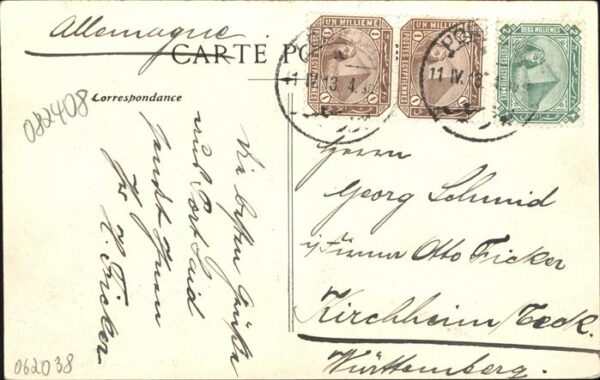 Allemagne
CARTE PO
Correspondance
082408
UN MILLIEME
UN MILLIEME
DEUX MILLIEMES
11 IV 13
11 IV
Die besten Grüße
aus Port Said
sendet Ihnen
Ihr H. Ficker
Herrn
Georg Schmid
i/Firma Otto Ficker
Kirchheim/Teck.
Württemberg.
062038